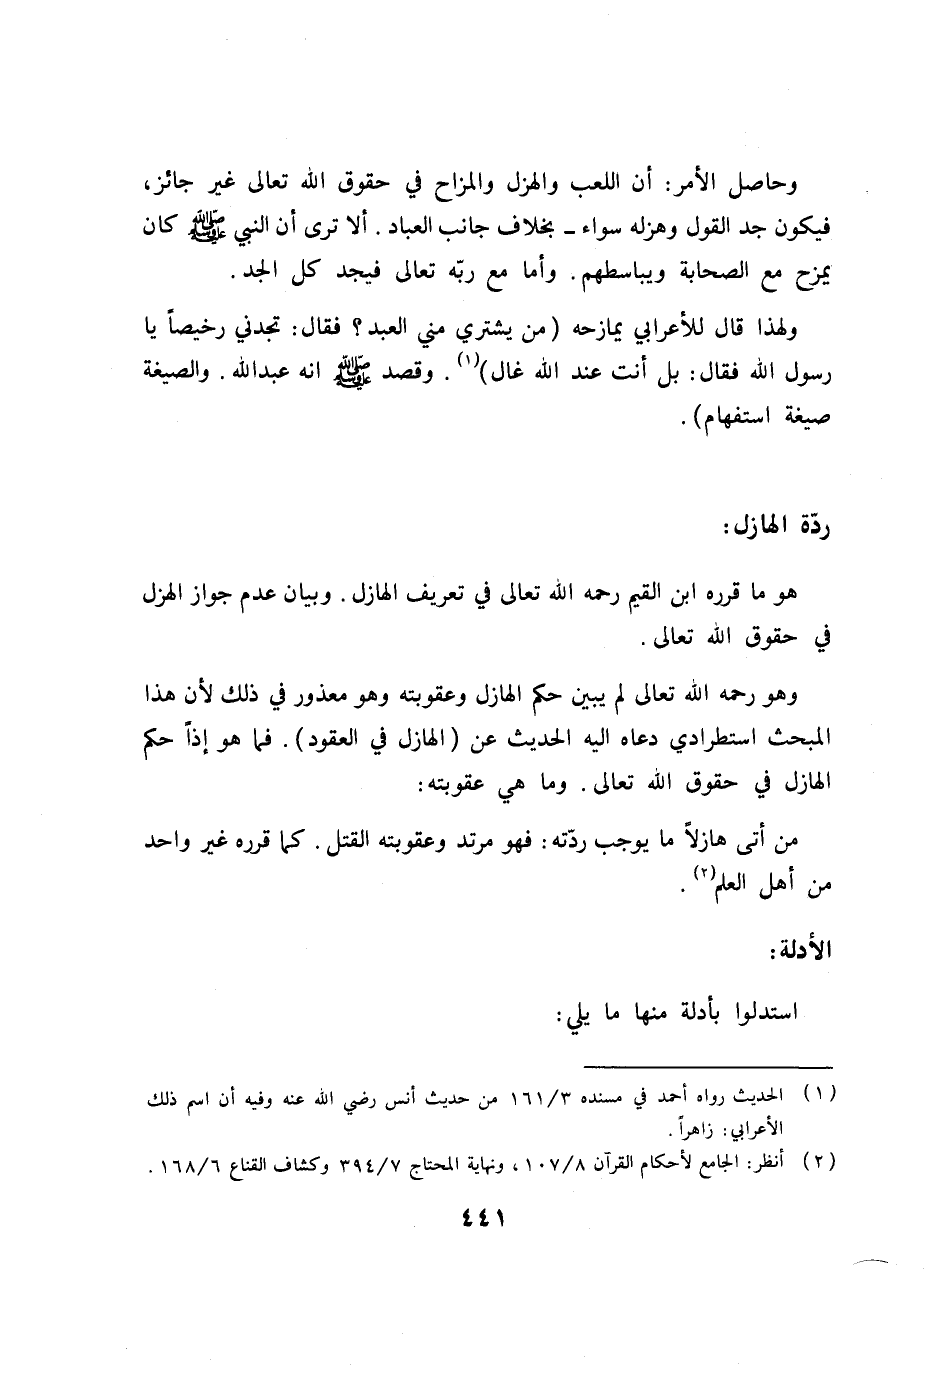 وحاصل الأمر: أن اللعب والهزل والمزاح في حقوق الله تعالى غير جائز،
فيكون جد القول وهزله سواء ـ بخلاف جانب العباد. ألا ترى أن النبي ﷺ كان
يمزح مع الصحابة ويباسطهم. وأما مع ربّه تعالى فيجد كل الجد.
ولهذا قال للأعرابي يمازحه (من يشتري مني العبد؟ فقال: تجدني رخيصاً يا
رسول الله فقال: بل أنت عند الله غال)(١). وقصد ﷺ انه عبدالله. والصيغة
صيغة استفهام).
ردّة الهازل:
هو ما قرره ابن القيم رحمه الله تعالى في تعريف الهازل. وبيان عدم جواز الهزل
في حقوق الله تعالى.
وهو رحمه الله تعالى لم يبين حكم الهازل وعقوبته وهو معذور في ذلك لأن هذا
المبحث استطرادي دعاه اليه الحديث عن (الهازل في العقود). فما هو إذاً حكم
الهازل في حقوق الله تعالى. وما هي عقوبته:
من أتى هازلاً ما يوجب ردّته: فهو مرتد وعقوبته القتل. كما قرره غير واحد
من أهل العلم(٢).
الأدلة:
استدلوا بأدلة منها ما يلي:
(١) الحديث رواه أحمد في مسنده ١٦١/٣ من حديث أنس رضي الله عنه وفيه أن اسم ذلك
الأعرابي: زاهراً.
(٢) أنظر: الجامع لأحكام القرآن ١٠٧/٨، ونهاية المحتاج ٣٩٤/٧ وكشاف القناع ١٦٨/٦.
٤٤١